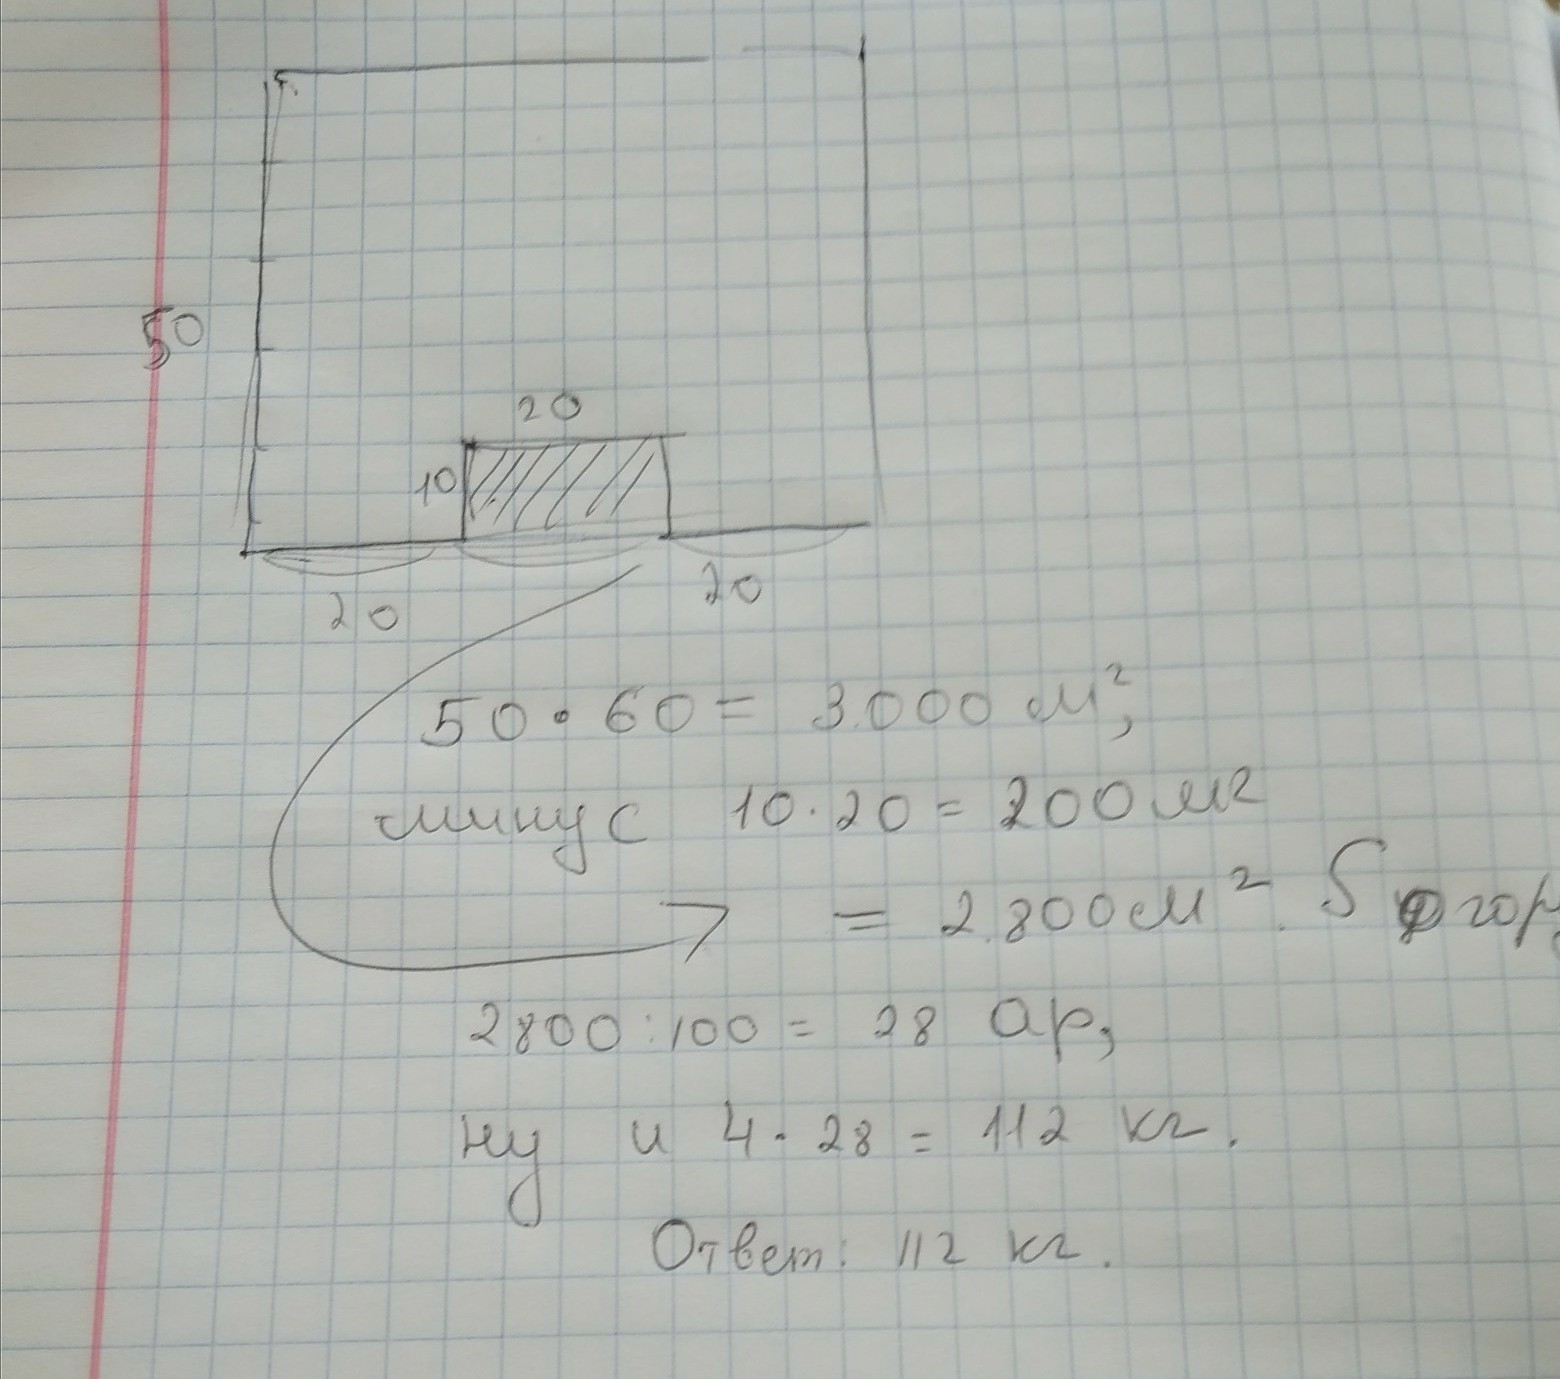 50
20
10
20
20
50 · 60 = 3.000 м²,
минус 10 · 20 = 200 м2
= 2.800 м². S огор
2800 : 100 = 28 ар,
ну и 4 · 28 = 112 кг.
Ответ: 112 кг.